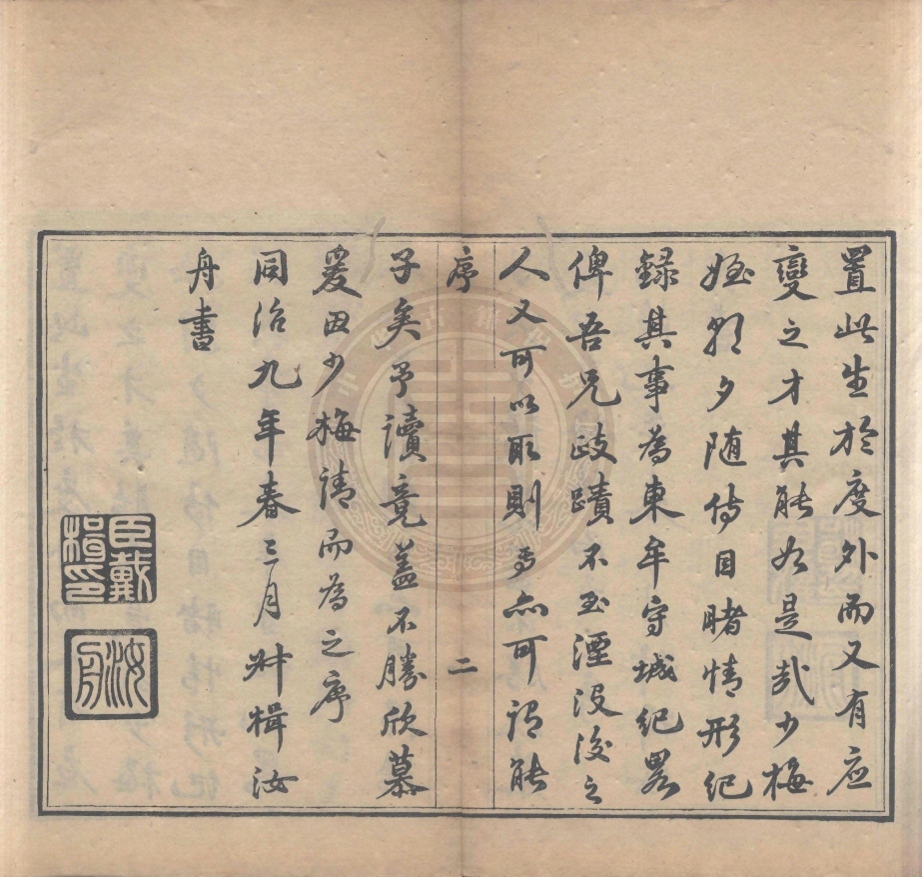 置此生於度外而又有应
變之才其能如是哉少梅
姪朝夕随侍目睹情形纪
録其事為東牟守城纪畧
俾吾兄政蹟不至湮没後之
人又可以取則焉亦可謂能
序 二
子矣予讀竟盖不勝欣慕
爰因少梅請而為之序
同治九年春三月叔楫汝
舟書
臣戴楫印
汝舟